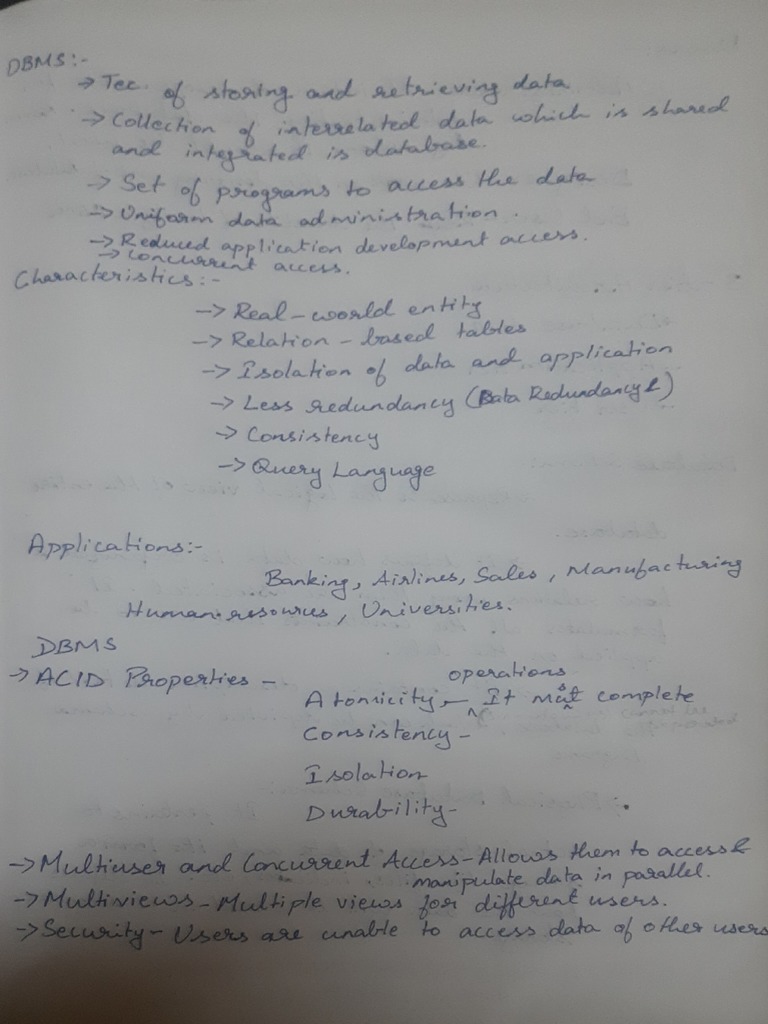 DBMS:-
→ Tec. of storing and retrieving data
→ Collection of interrelated data which is shared
and integrated is database.
→ Set of programs to access the data
→ Uniform data administration.
→ Reduced application development access.
→ Concurrent access.
Characteristics:-
→ Real-world entity
→ Relation-based tables
→ Isolation of data and application
→ Less redundancy (Data Redundancy)
→ Consistency
→ Query Language
Applications:-
Banking, Airlines, Sales, Manufacturing
Human resources, Universities.
DBMS
→ ACID Properties -
Atomicity - operations It must complete
Consistency -
Isolation
Durability -
→ Multiuser and Concurrent Access - Allows them to access &
manipulate data in parallel.
→ Multiviews - Multiple views for different users.
→ Security - Users are unable to access data of other users